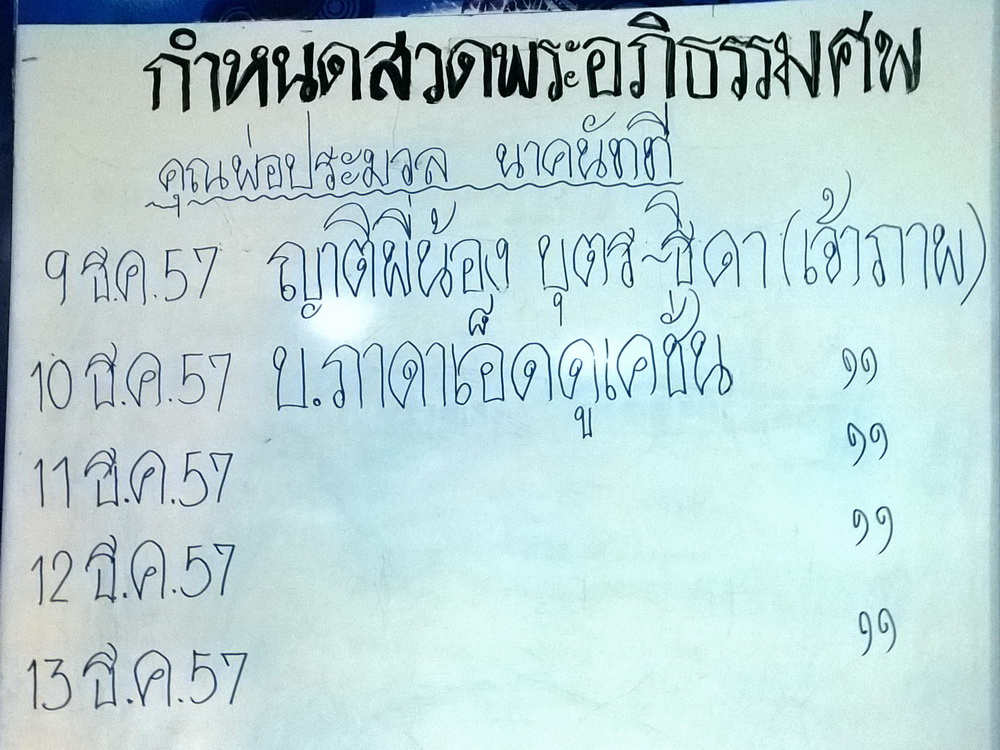 กำหนดสวดพระอภิธรรมศพ
คุณพ่อประมวล นาคนัทที
9 ธ.ค.57 ญาติพี่น้อง บุตร-ธิดา (เจ้าภาพ)
10 ธ.ค.57 บ.ภาดาเอ็ดดูเคชั่น ,,
11 ธ.ค.57 ,,
12 ธ.ค.57 ,,
13 ธ.ค.57 ,,